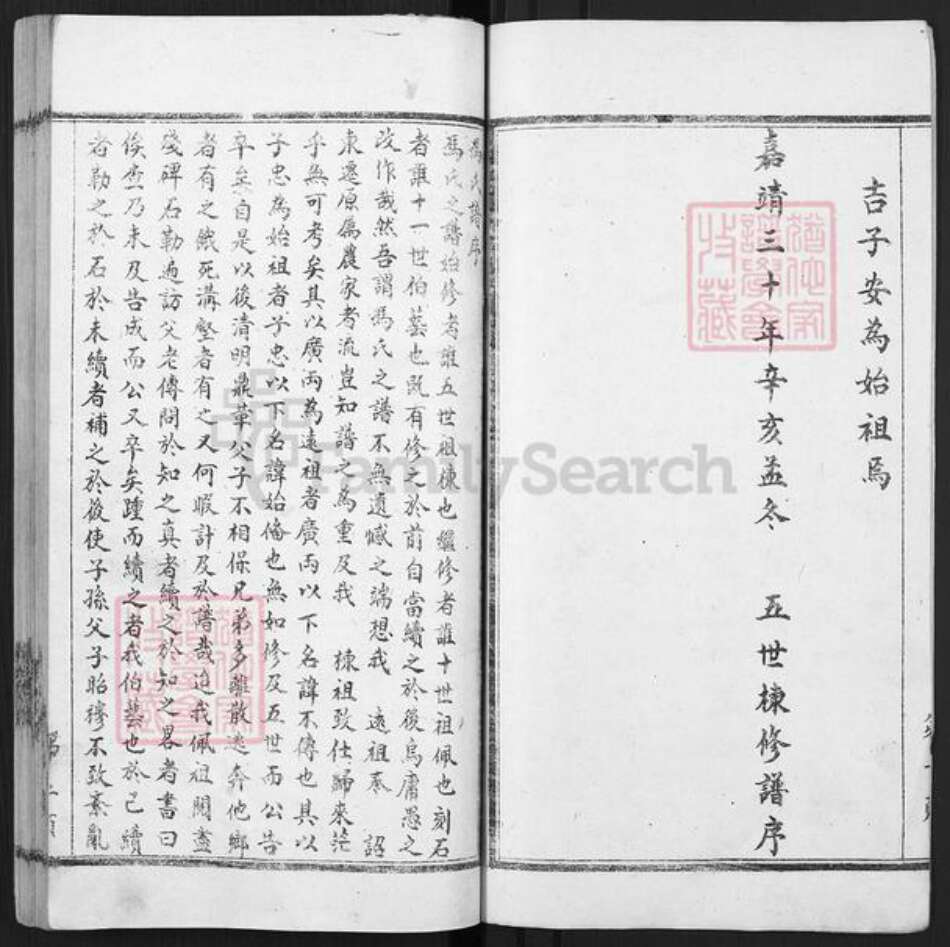 吉子安為始祖焉
嘉靖三十年辛亥孟冬　五世棟修譜序
馮氏譜序
馮氏之譜始修者誰五世祖棟也繼修者誰十世祖佩也刻石
者誰十一世伯芸也既有修之於前自當續之於後烏庸愚之
改作哉然吾謂馮氏之譜不無遺憾之端想我　遠祖奉　詔
東遷原屬農家者流豈知譜之為重及我　棟祖致仕歸來茫
乎無可考矣其以廣丙為遠祖者廣丙以下名諱不傳也其以
子忠為始祖者子忠以下名諱始俻也無如修及五世而公告
卒矣自是以後清明鼎革父子不相保兄弟多離散逃奔他鄉
者有之餓死溝壑者有之又何暇計及於譜哉迨我佩祖閱盡
殘碑石勒遍訪父老傳問於知之真者續之於知之畧者書曰
俟查乃未及告成而公又卒矣踵而續之者我伯芸也於已續
者勒之於石於未續者補之於後使子孫父子昭穆不致紊亂
FamilySearch